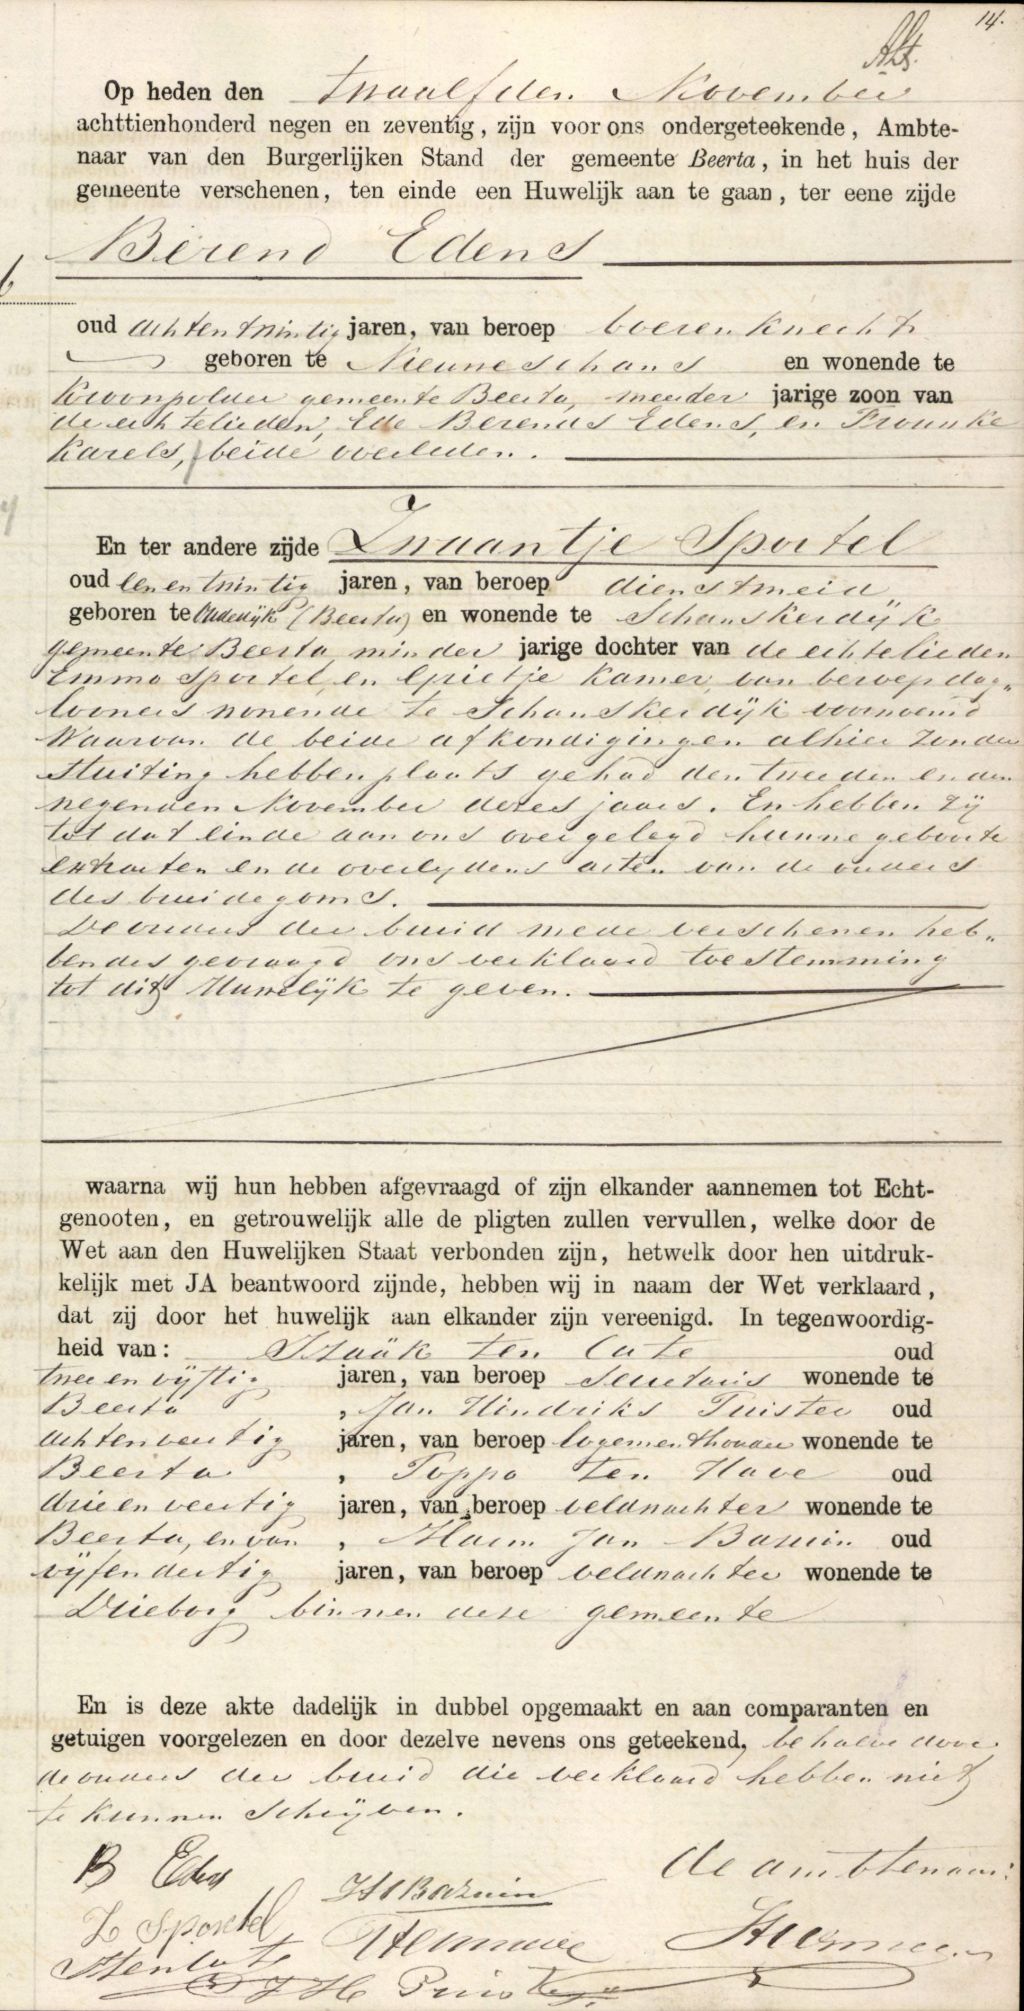 14.
Op heden den twaalfden November
achttienhonderd negen en zeventig, zijn voor ons ondergeteekende, Ambte-
naar van den Burgerlijken Stand der gemeente Beerta, in het huis der
gemeente verschenen, ten einde een Huwelijk aan te gaan, ter eene zijde
Berend Edens
oud achtentwintig jaren, van beroep boerenknecht
geboren te Nieuweschans en wonende te
Kroonpolder gemeente Beerta, meerder jarige zoon van
de echtelieden, Ede Berends Edens, en Frouwke
Karels, beide overleden.
En ter andere zijde Zwaantje Sportel
oud eenentwintig jaren, van beroep dienstmeid
geboren te Oudedijk (Beerta) en wonende te Schanskerdijk
gemeente Beerta minder jarige dochter van de echtelieden
Emmo Sportel, en Grietje Kamer, van beroep dag„
looners wonende te Schanskerdijk voornoemd
Waarvan de beide afkondigingen alhier zonder
stuiting hebben plaats gehad den tweeden en den
negenden November dezes jaars. En hebben zij
tot dat einde aan ons overgelegd hunne geboorte
extracten en de overlijdens acten van de ouders
des bruidegoms.
De ouders der bruid mede verschenen heb„
ben des gevraagd ons verklaard toestemming
tot dit Huwelijk te geven.
waarna wij hun hebben afgevraagd of zijn elkander aannemen tot Echt-
genooten, en getrouwelijk alle de pligten zullen vervullen, welke door de
Wet aan den Huwelijken Staat verbonden zijn, hetwelk door hen uitdruk-
kelijk met JA beantwoord zijnde, hebben wij in naam der Wet verklaard,
dat zij door het huwelijk aan elkander zijn vereenigd. In tegenwoordig-
heid van: Izaäk ten Cate oud
twee en vijftig jaren, van beroep Secretaris wonende te
Beerta, Jan Hindriks Puister oud
achtenveertig jaren, van beroep logementhouder wonende te
Beerta, Poppo ten Have oud
drie en veertig jaren, van beroep veldwachter wonende te
Beerta, en van, Harm Jan Bazuin oud
vijfendertig jaren, van beroep veldwachter wonende te
Drieborg binnen deze gemeente
En is deze akte dadelijk in dubbel opgemaakt en aan comparanten en
getuigen voorgelezen en door dezelve nevens ons geteekend, behalve door
de ouders der bruid die verklaard hebben niet
te kunnen schrijven.
B Edens
de ambtenaar:
HJBazuin
Z Sportel
PtenHave
Itencate
J H Puister